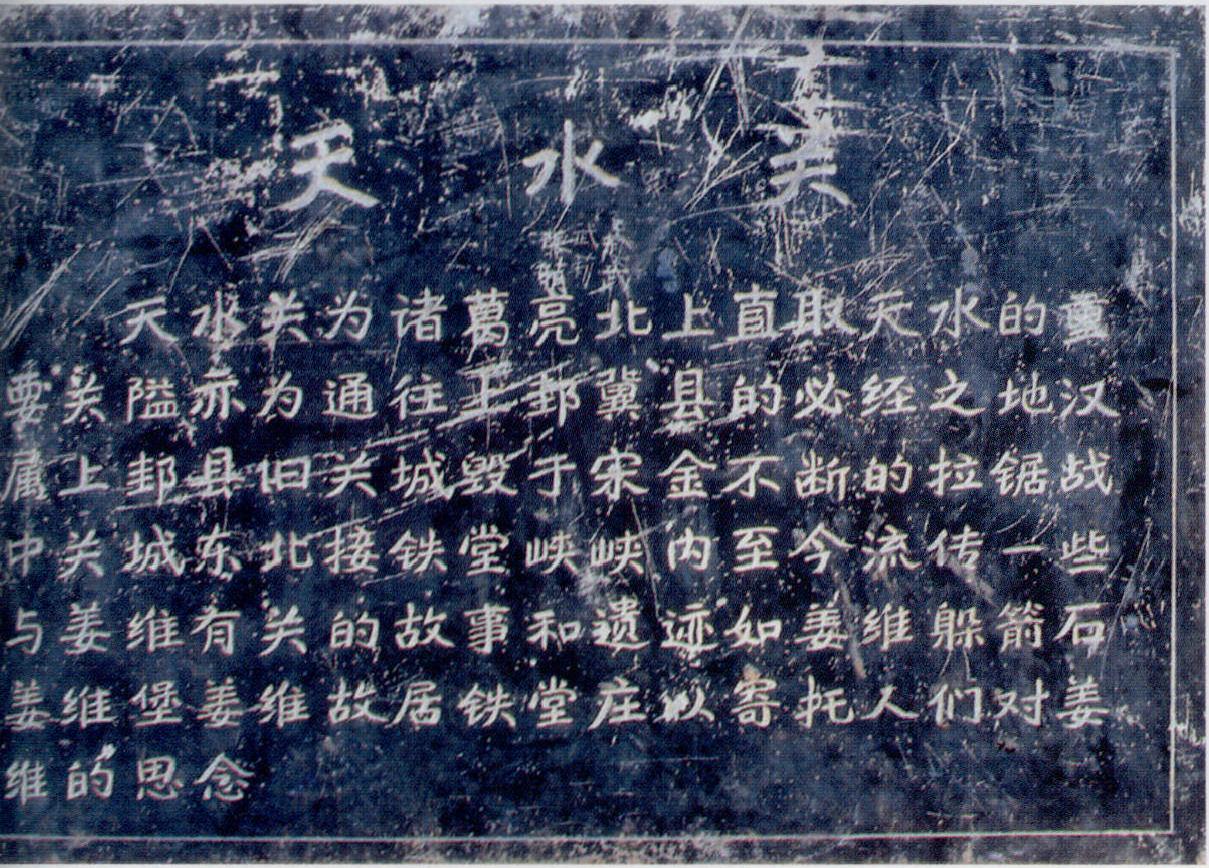 天水关
天水关为诸葛亮北上直取天水的重
要关隘亦为通往上邽冀县的必经之地汉
属上邽县旧关城毁于宋金不断的拉锯战
中关城东北接铁堂峡峡内至今流传一些
与姜维有关的故事和遗迹如姜维躲箭石
姜维堡姜维故居铁堂庄以寄托人们对姜
维的思念